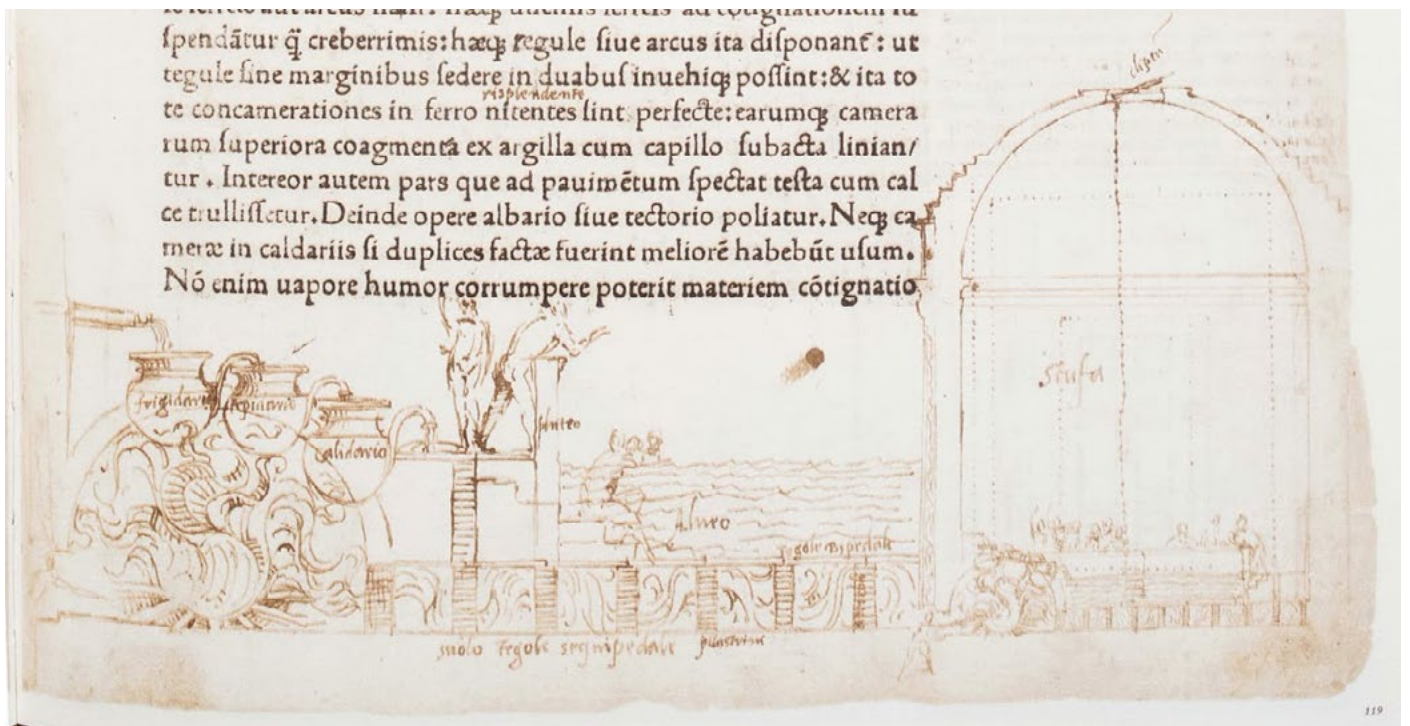 spendātur q̄ creberrimis: hæcq; regule siue arcus ita disponant̄: ut
tegule sine marginibus sedere in duabus inuehiq; possint: & ita to
risplendente
te concamerationes in ferro nitentes sint perfecte: earumq; camera
rum superiora coagmenta ex argilla cum capillo subacta linian/
tur. Intereor autem pars que ad pauimētum spectat testa cum cal
ce trullissetur. Deinde opere albario siue tectorio poliatur. Neq; ca
meræ in caldariis si duplices factæ fuerint meliorē habebūt usum.
Nō enim uapore humor corrumpere poterit materiem cōtignatio
clipeo
Stufa
frigidario tepidario
calidario
pluteo
alueo
tegole bipedale
suolo tegole sequipedale pilastrini
119